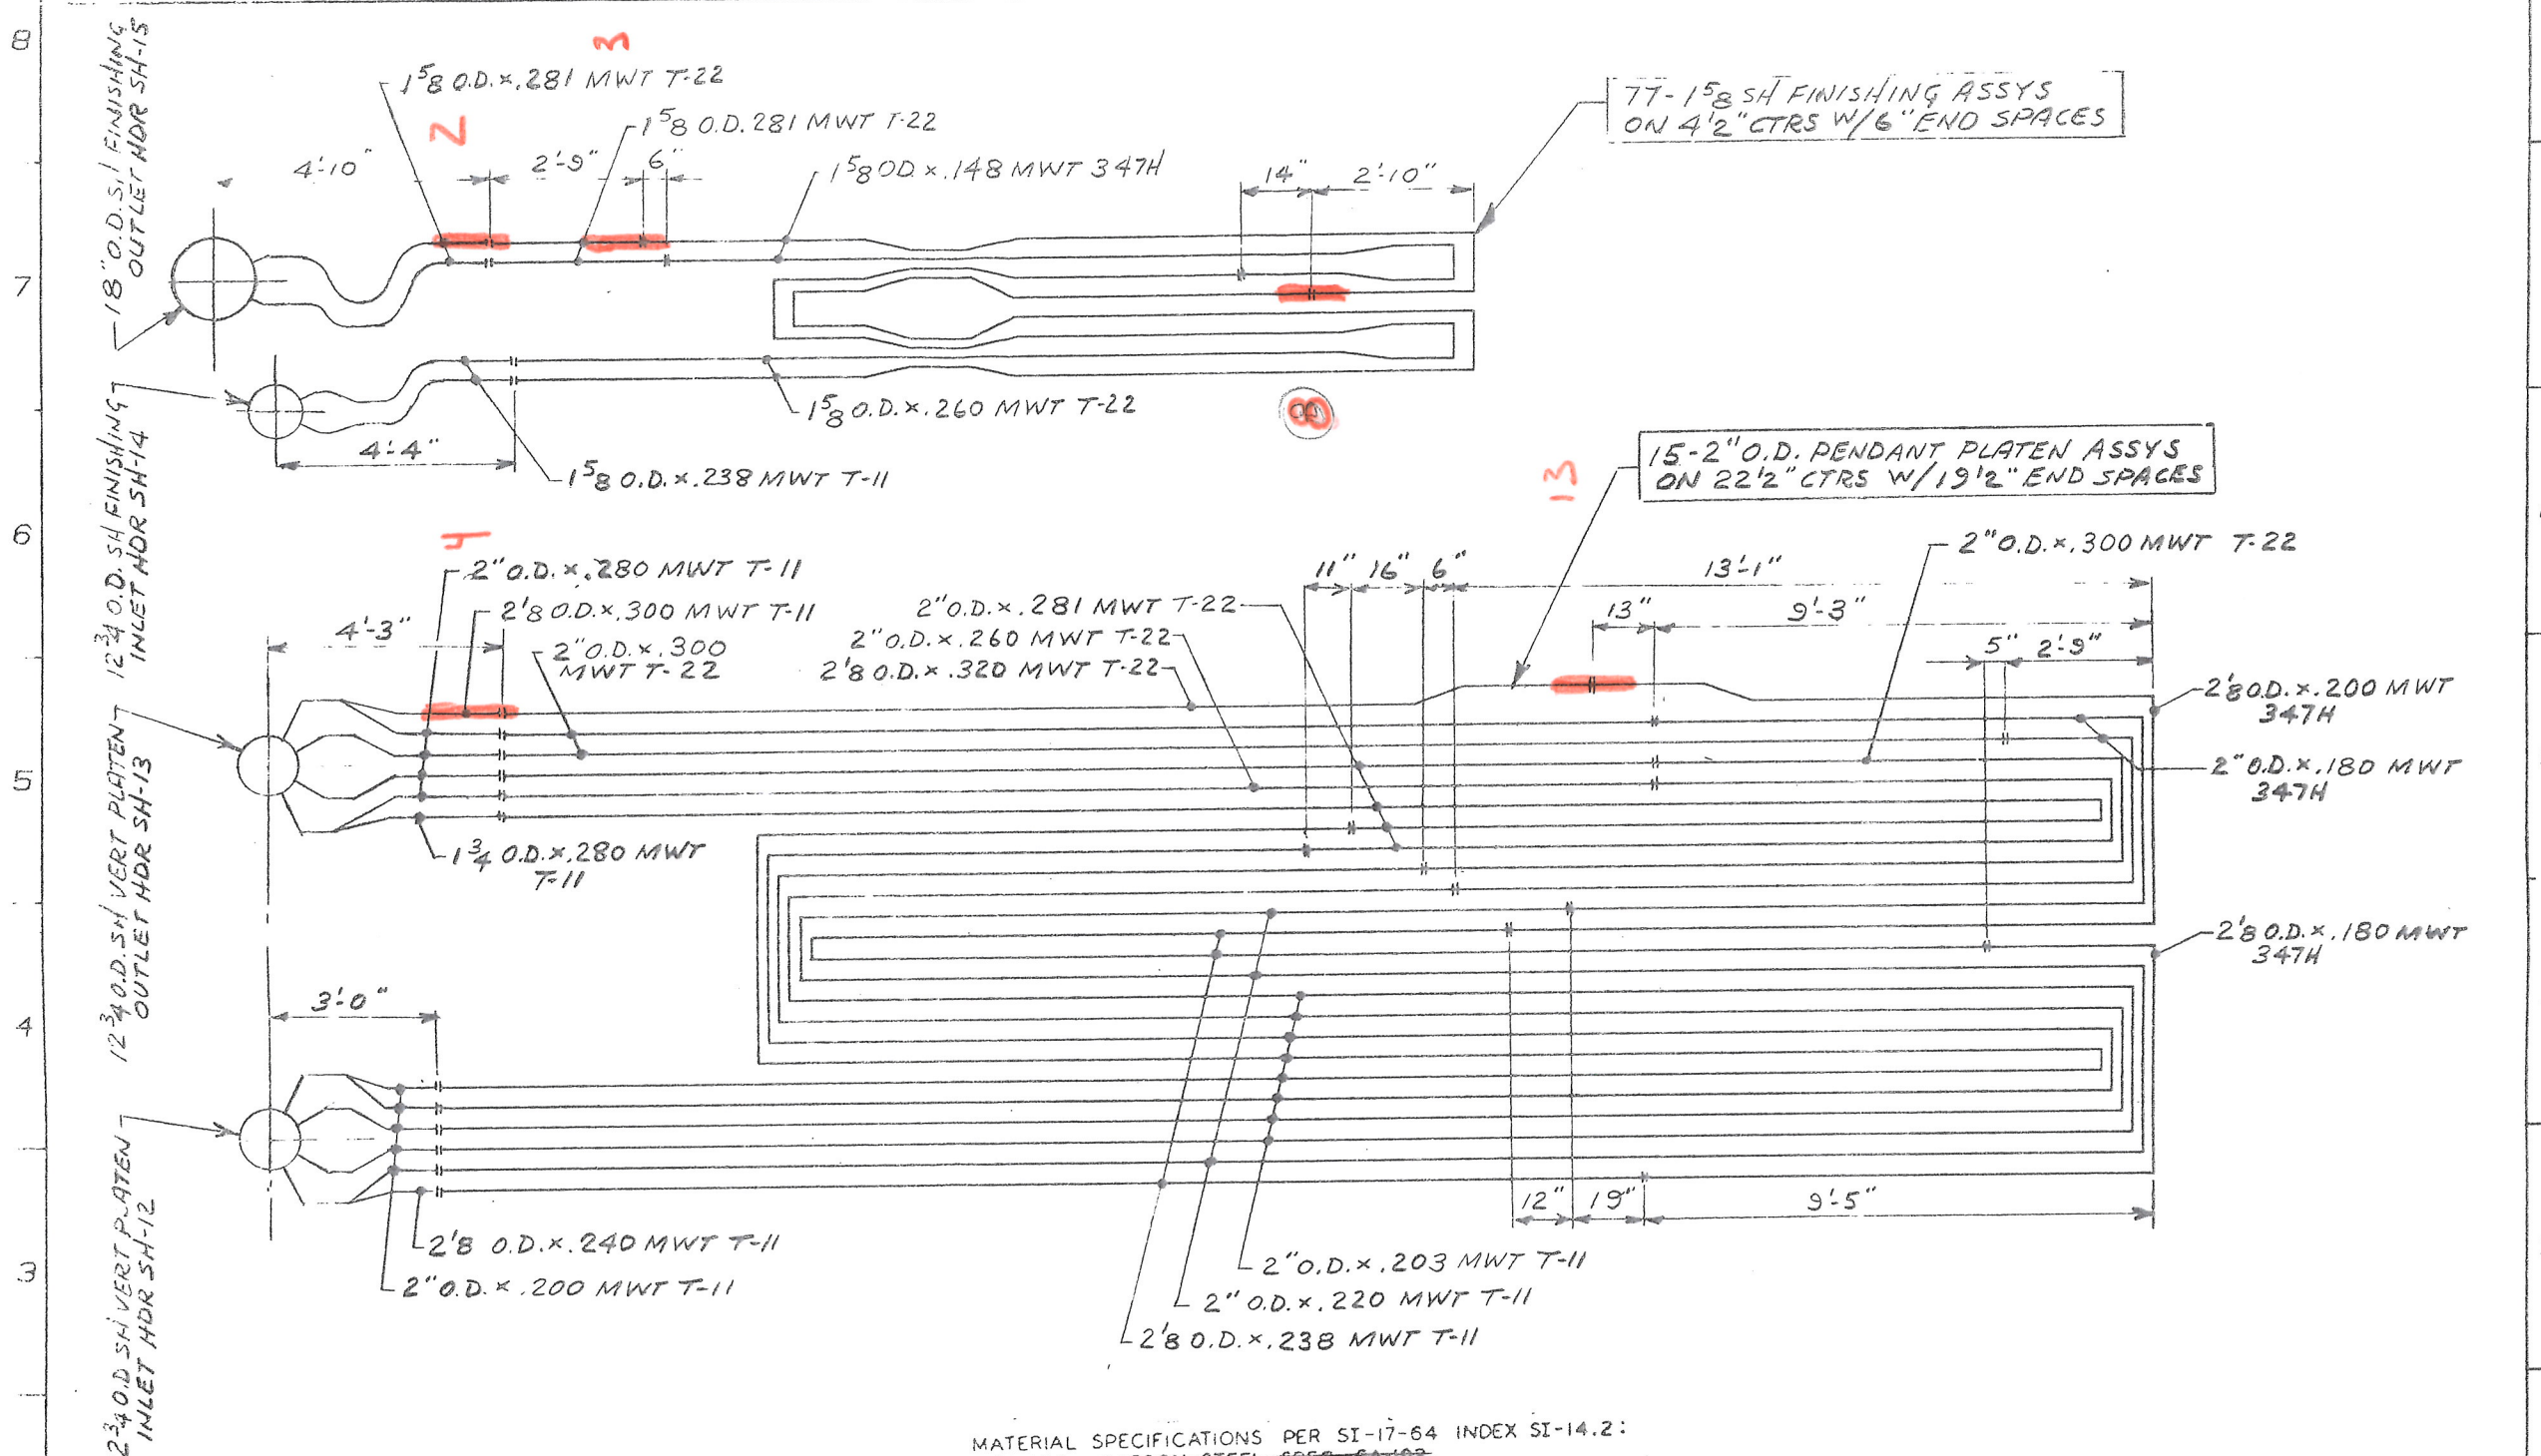 8
7
6
5
4
3
18" O.D. SH FINISHING
OUTLET HDR SH-15
12 3/4 O.D. SH FINISHING
INLET HDR SH-14
12 3/4 O.D. SH VERT PLATEN
OUTLET HDR SH-13
2 3/4 O.D SH VERT PLATEN
INLET HDR SH-12
3
1 5/8 O.D. x .281 MWT T-22
2
1 5/8 O.D. 281 MWT T-22
77- 1 5/8 SH FINISHING ASSYS
ON 4 1/2" CTRS W/6" END SPACES
4'-10"
2'-9"
6"
1 5/8 OD x .148 MWT 347H
14"
2'-10"
1 5/8 O.D. x .260 MWT T-22
8
4'-4"
1 5/8 O.D. x .238 MWT T-11
15-2" O.D. PENDANT PLATEN ASSYS
ON 22 1/2" CTRS W/19 1/2" END SPACES
13
4
2" O.D. x .280 MWT T-11
2 1/8 O.D. x .300 MWT T-11
4'-3"
2" O.D. x .300
MWT T-22
2" O.D. x .281 MWT T-22
2" O.D. x .260 MWT T-22
2 1/8 O.D. x .320 MWT T-22
11"
16"
6"
13'-1"
2" O.D. x .300 MWT T-22
13"
9'-3"
5"
2'-9"
2 1/8 O.D. x .200 MWT
347H
2" O.D. x .180 MWT
347H
1 3/4 O.D. x .280 MWT
T-11
2 1/8 O.D. x .180 MWT
347H
3'-0"
12"
19"
9'-5"
2 1/8 O.D. x .240 MWT T-11
2" O.D. x .200 MWT T-11
2" O.D. x .203 MWT T-11
2" O.D. x .220 MWT T-11
2 1/8 O.D. x .238 MWT T-11
MATERIAL SPECIFICATIONS PER SI-17-64 INDEX SI-14.2: